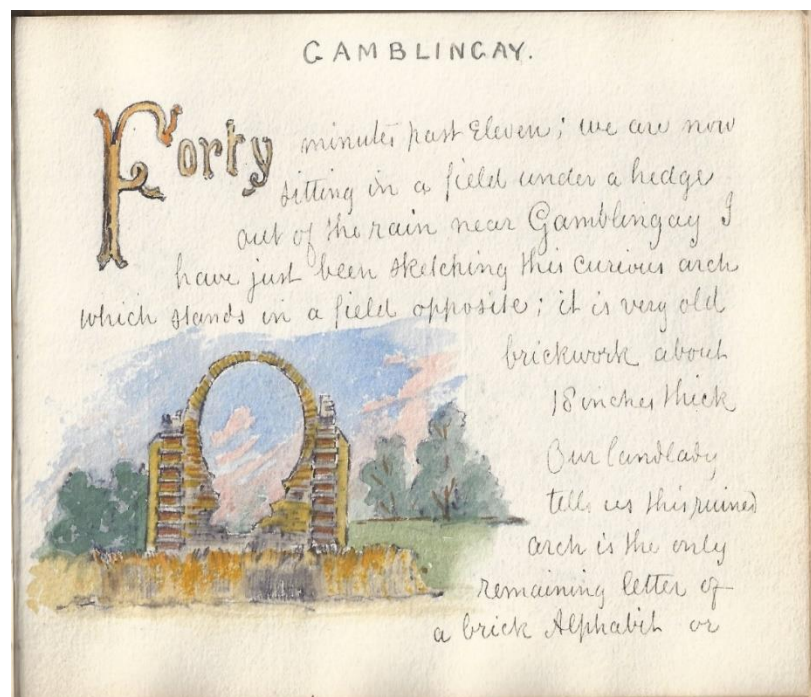 GAMBLINGAY.
Forty minutes past Eleven; we are now
sitting in a field under a hedge
out of the rain near Gamblingay I
have just been sketching this curious arch
which stands in a field opposite; it is very old
brickwork about
18 inches thick
Our landlady
tells us this ruined
arch is the only
remaining letter of
a brick Alphabit or